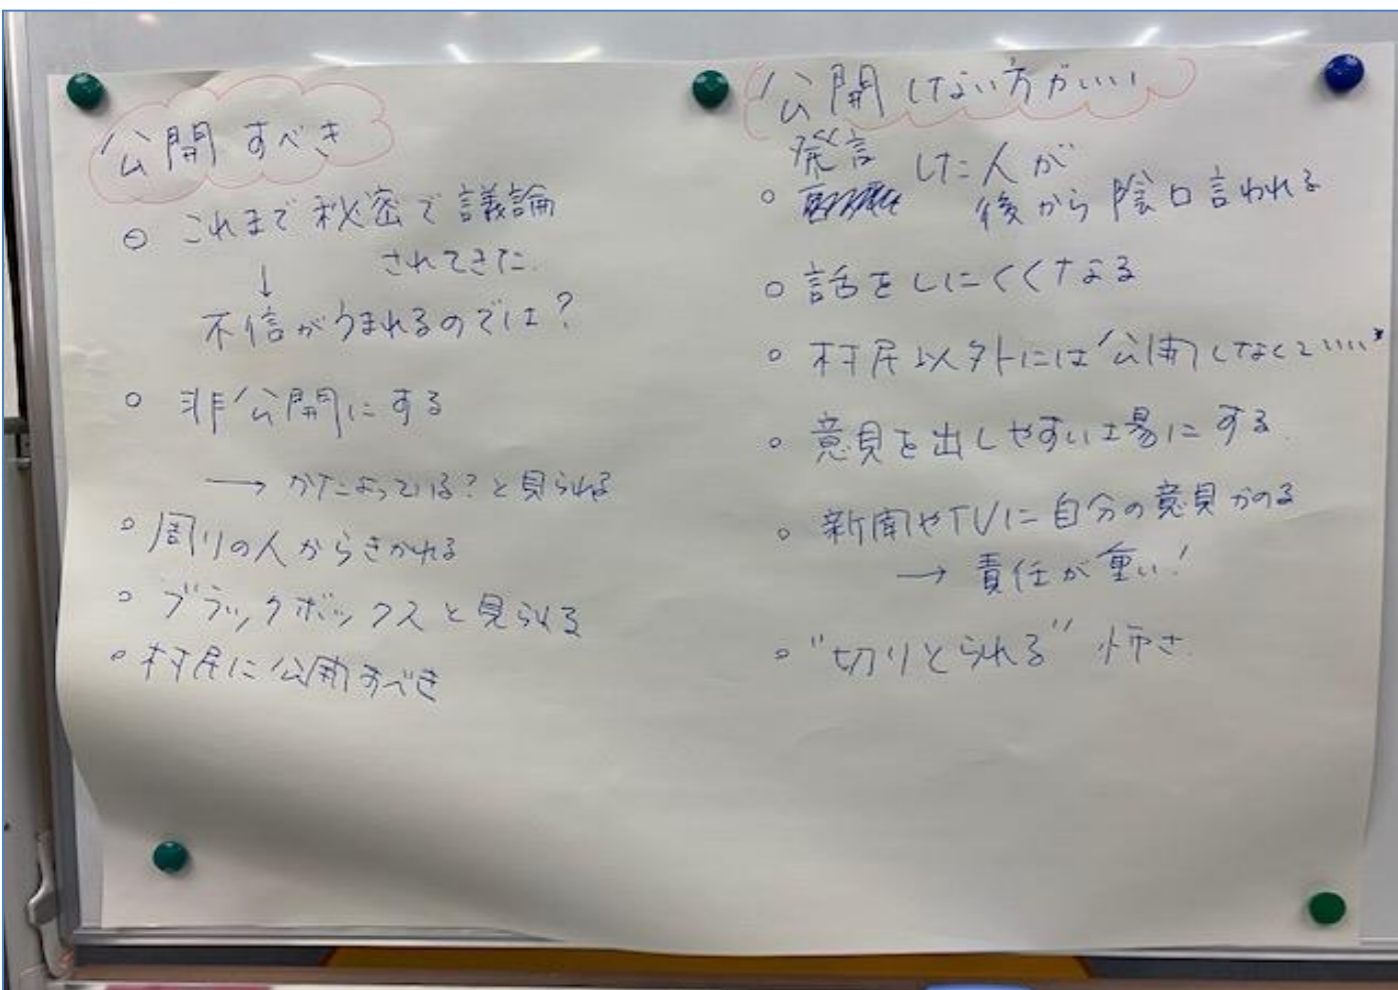 公開すべき
○ これまで秘密で議論
されてきた.
↓
不信がうまれるのでは?
○ 非公開にする
→ かたよっている?と見られる
○ 周りの人からきかれる
○ ブラックボックスと見られる
○ 村民に公開すべき
公開しない方がいい
発言
○ した人が
後から陰口言われる
○ 話をしにくくなる
○ 村民以外には公開しなくていい
○ 意見を出しやすい場にする.
○ 新聞やTVに自分の意見がのる
→ 責任が重い!
○ "切りとられる" 怖さ.